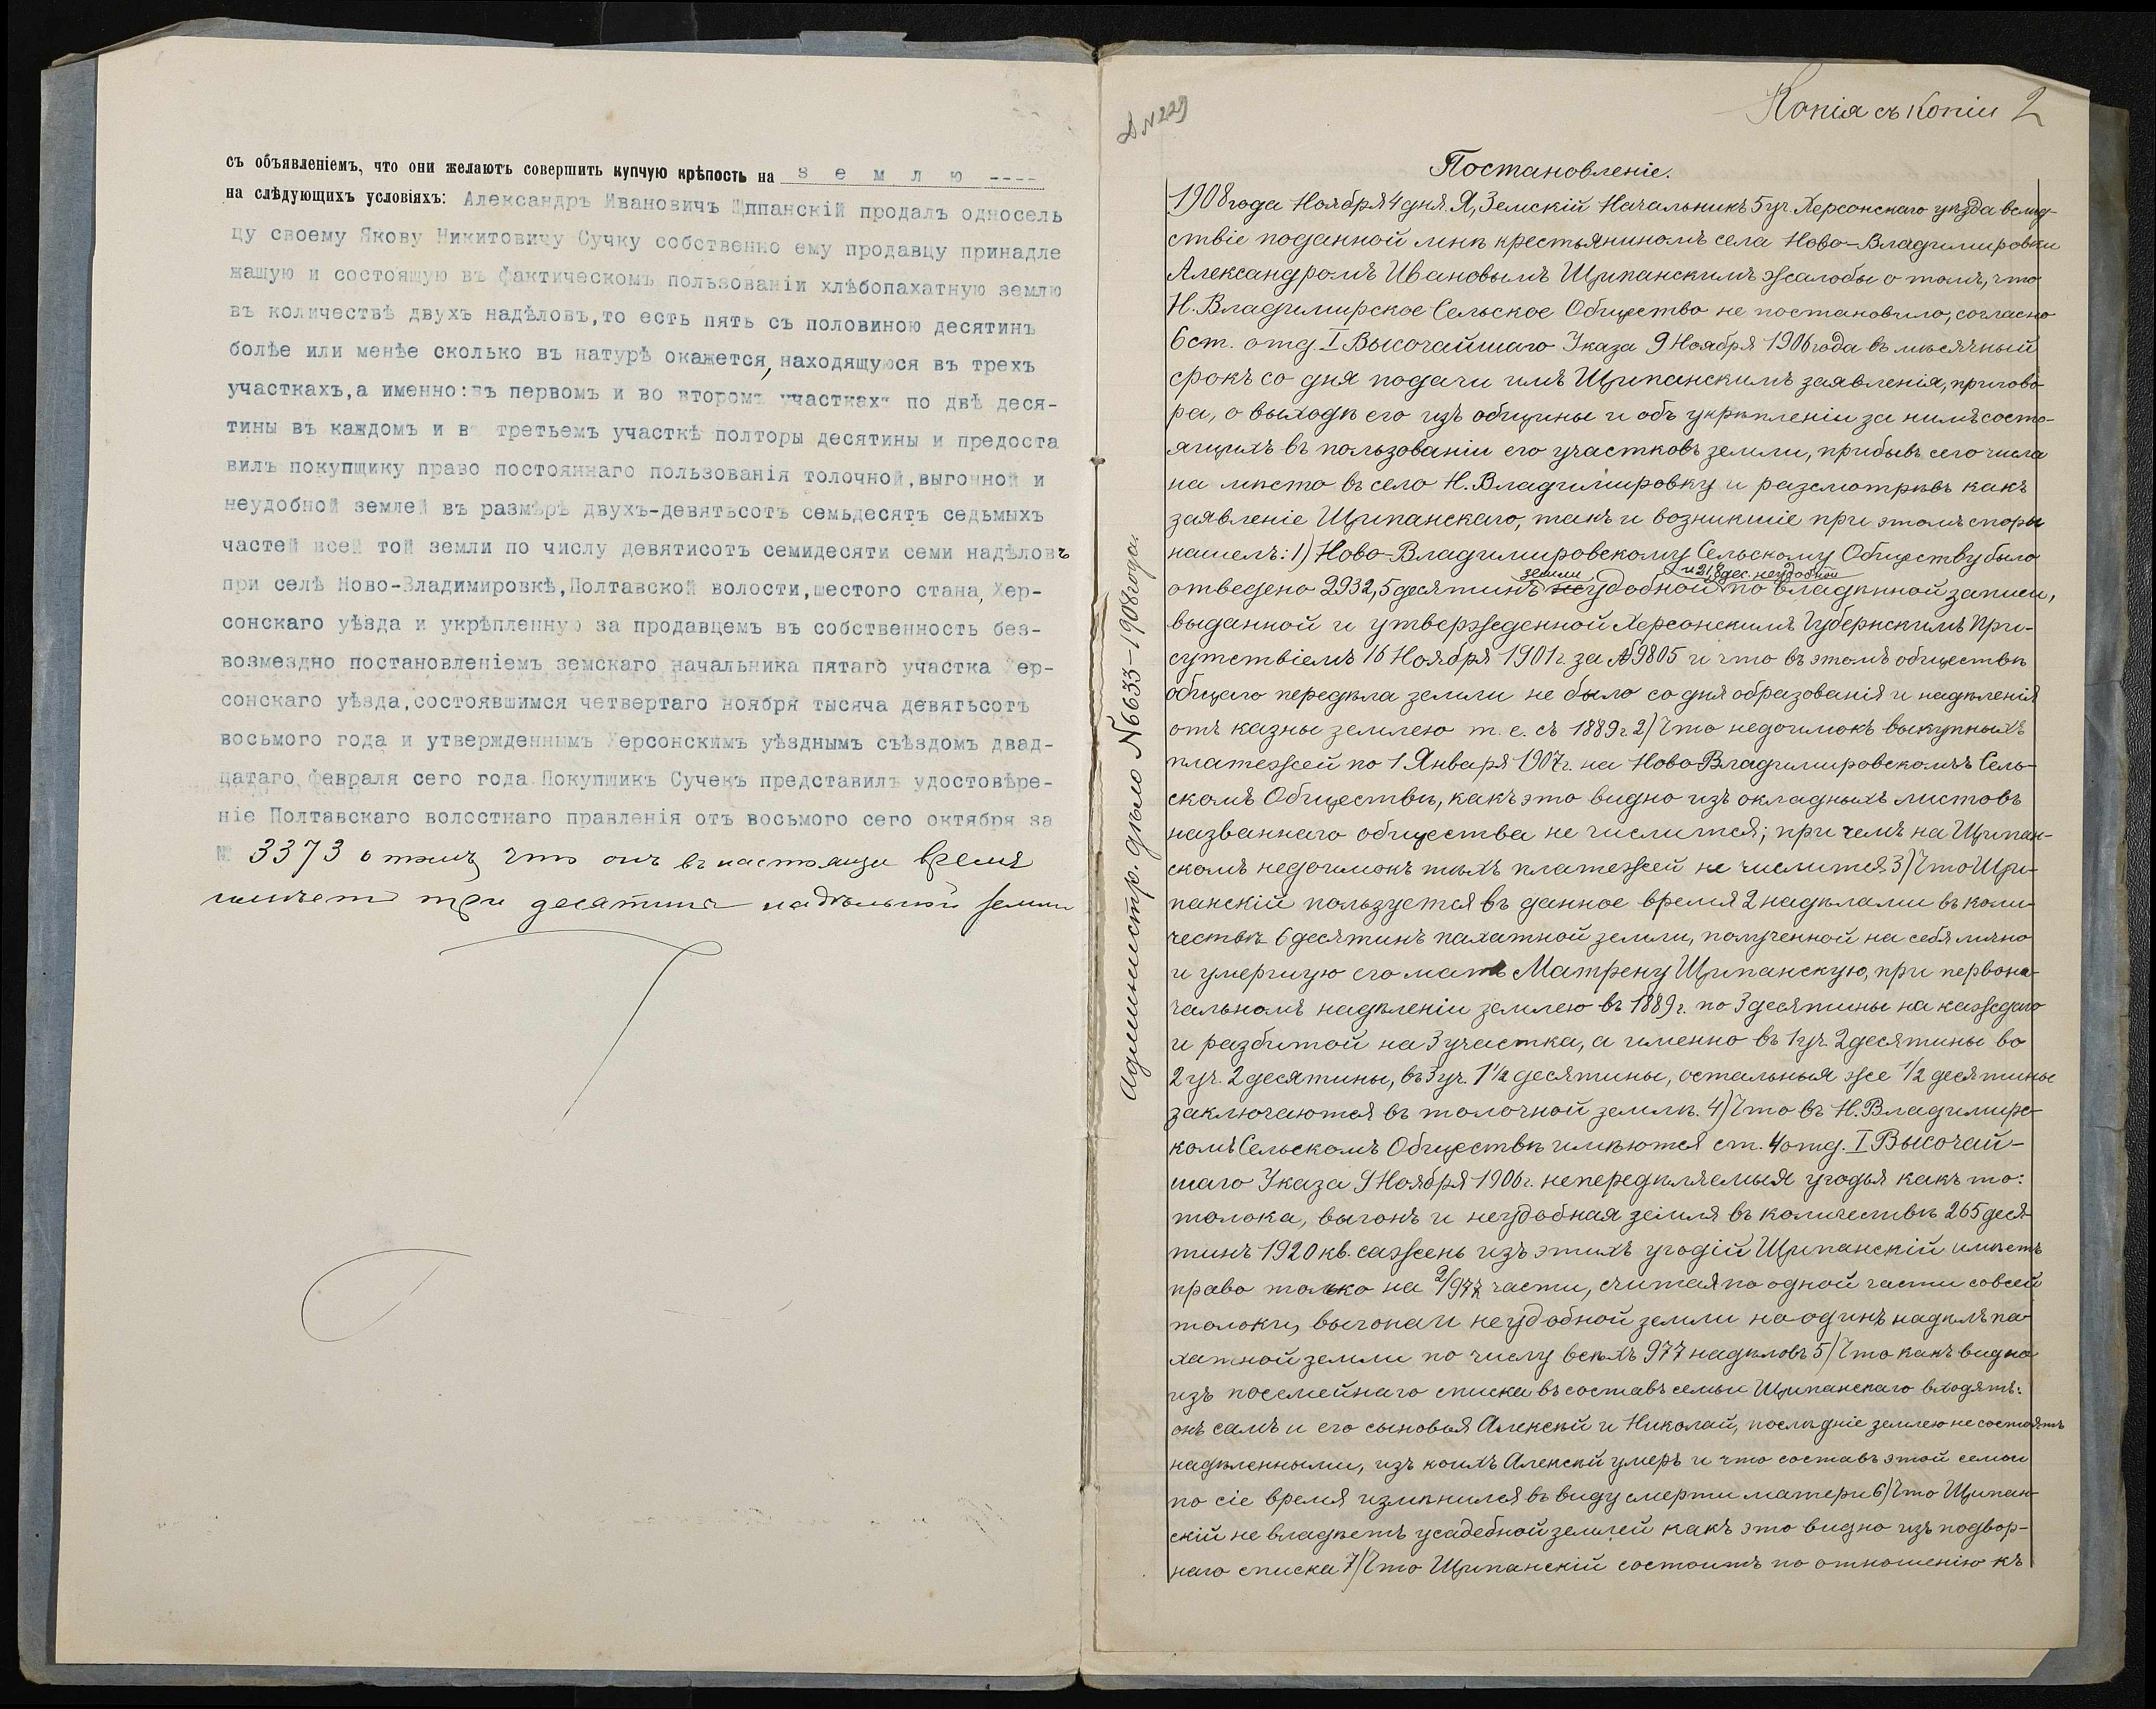 съ объявленіемъ, что они желаютъ совершить купчую крѣпость на землю ----
на слѣдующихъ условіяхъ: Александръ Ивановичъ Щипанскій продалъ односель
цу своему Якову Никитовичу Сучку собственно ему продавцу принадле
жащую и состоящую въ фактическомъ пользованіи хлѣбопахатную землю
въ количествѣ двухъ надѣловъ, то есть пять съ половиною десятинъ
болѣе или менѣе сколько въ натурѣ окажется, находящуюся въ трехъ
участкахъ, а именно: въ первомъ и во второмъ участкахъ по двѣ деся-
тины въ каждомъ и въ третьемъ участкѣ полторы десятины и предоста
вилъ покупщику право постояннаго пользованія толочной, выгонной и
неудобной землей въ размѣрѣ двухъ-девятьсотъ семьдесятъ седьмыхъ
частей всей той земли по числу девятисотъ семидесяти семи надѣловъ
при селѣ Ново-Владимировкѣ, Полтавской волости, шестого стана, Хер-
сонскаго уѣзда и укрѣпленную за продавцемъ въ собственность без-
возмездно постановленіемъ земскаго начальника пятаго участка Хер-
сонскаго уѣзда, состоявшимся четвертаго ноября тысяча девятьсотъ
восьмого года и утвержденнымъ Херсонскимъ уѣзднымъ съѣздомъ двад-
цатаго февраля сего года. Покупщикъ Сучекъ представилъ удостовѣре-
ніе Полтавскаго волостнаго правленія отъ восьмого сего октября за
№ 3373 о томъ, что онъ въ настоящее время
имѣетъ три десятины надѣльной земли
Д №229
Копія съ Копіи 2
Административ. дѣло №6633-1908 года.
Постановленіе.
1908 года Ноября 4 дня. Я, Земскій Начальникъ 5 уч. Херсонскаго уѣзда вслѣд-
ствіе поданной мнѣ крестьяниномъ села Ново-Владимировки
Александромъ Ивановымъ Щипанскимъ жалобы о томъ, что
Н. Владимирское Сельское Общество не постановило, согласно
6 ст. отд. I Высочайшаго Указа 9 Ноября 1906 года въ мѣсячный
срокъ со дня подачи имъ Щипанскимъ заявленія, пригово-
ра, о выходѣ его изъ общины и объ укрѣпленіи за нимъ состо-
ящихъ въ пользованіи его участковъ земли, прибывъ сего числа
на мѣсто въ село Н. Владимировку и разсмотрѣвъ какъ
заявленіе Щипанскаго, такъ и возникшіе при этомъ споры
нашелъ: 1) Ново-Владимировскому Сельскому Обществу было
земли и 218 дес. неудобной
отведено 2932,5 десятинъ неудобной по владѣнной записи,
выданной и утвержденной Херсонскимъ Губернскимъ При-
сутствіемъ 16 Ноября 1901 г. за №9805 и что въ этомъ обществѣ
общаго передѣла земли не было со дня образованія и надѣленія
отъ казны землею т. е. съ 1889 г. 2) Что недоимокъ выкупныхъ
платежей по 1 Января 1907 г. на Ново Владимировскомъ Сель-
скомъ Обществѣ, какъ это видно изъ окладныхъ листовъ
названнаго общества не числится; при чемъ на Щипан-
скомъ недоимокъ тѣхъ платежей не числится 3) Что Щи-
панскій пользуется въ данное время 2 надѣлами въ коли-
чествѣ 6 десятинъ пахатной земли, полученной на себя лично
и умершую его мать Матрену Щипанскую, при первона-
чальномъ надѣленіи землею въ 1889 г. по 3 десятины на каждаго
и разбитой на 3 участка, а именно въ 1 уч. 2 десятины во
2 уч. 2 десятины, въ 3 уч. 1 1/2 десятины, остальныя же 1/2 десятины
заключаются въ толочной землѣ. 4) Что въ Н. Владимирс-
комъ Сельскомъ Обществѣ имѣются ст. 4 отд. I Высочай-
шаго Указа 9 Ноября 1906 г. непередѣляемыя угодья какъ то:
толока, выгонъ и неудобная земля въ количествѣ 265 деся-
тинъ 1920 кв. сажень изъ этихъ угодій Щипанскій имѣетъ
право только на 2/977 части, считая по одной части со всей
толоки, выгона и неудобной земли на одинъ надѣлъ па-
хатной земли по числу всѣхъ 977 надѣловъ 5) Что какъ видно
изъ посемейнаго списка въ составъ семьи Щипанскаго входятъ:
онъ самъ и его сыновья Алексѣй и Николай, послѣдніе землею не состоятъ
надѣленными, изъ коихъ Алексѣй умеръ и что составъ этой семьи
по сіе время измѣнился въ виду смерти матери 6) Что Щипан-
скій не владѣетъ усадебной землей какъ это видно изъ подвор-
наго списка 7) Что Щипанскій состоитъ по отношенію къ